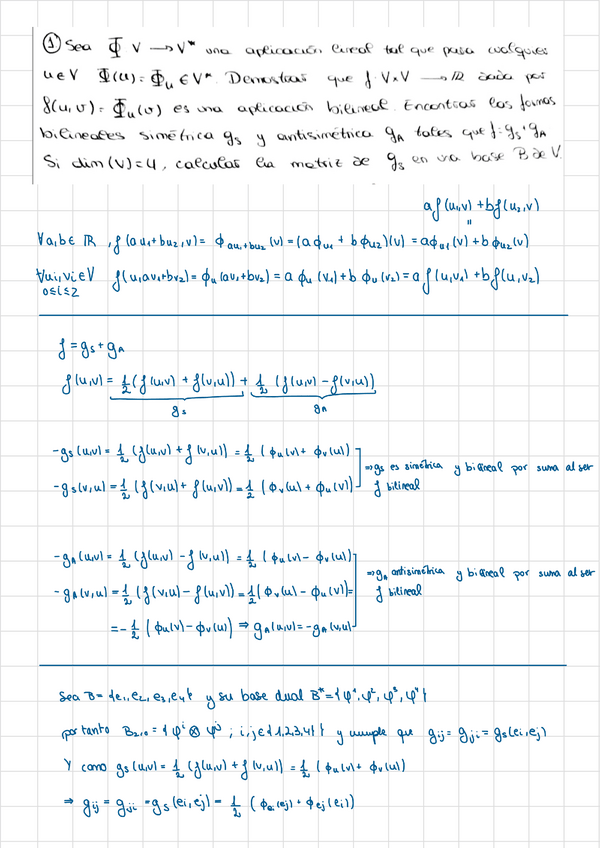 ① Sea Φ V → V* una aplicación lineal tal que para cualquier
u∈V Φ(u)=Φu ∈ V*. Demostrar que f: V×V → ℝ dada por
f(u,v)=Φu(v) es una aplicación bilineal. Encontrar las formas
bilineales simétrica gs y antisimétrica gA tales que f=gs+gA
Si dim(V)=4, calcular la matriz de gs en una base B de V.
af(u1,v)+bf(u2,v)
=
∀a,b∈ℝ, f(au1+bu2,v)=ϕau1+bu2(v)=(aϕu1+bϕu2)(v)=aϕu1(v)+bϕu2(v)
∀ui,vi∈V f(u,av1+bv2)=ϕu(av1+bv2)=aϕu(v1)+bϕu(v2)=af(u,v1)+bf(u,v2)
0≤i≤2
f=gs+gA
f(u,v)=1/2(f(u,v)+f(v,u))+1/2(f(u,v)-f(v,u))
gs gA
-gs(u,v)=1/2(f(u,v)+f(v,u))=1/2(ϕu(v)+ϕv(u))
⇒gs es simétrica y bilineal por suma al ser
-gs(v,u)=1/2(f(v,u)+f(u,v))=1/2(ϕv(u)+ϕu(v))
f bilineal
-gA(u,v)=1/2(f(u,v)-f(v,u))=1/2(ϕu(v)-ϕv(u))
⇒gA antisimétrica y bilineal por suma al ser
-gA(v,u)=1/2(f(v,u)-f(u,v))=1/2(ϕv(u)-ϕu(v))=
f bilineal
=-1/2(ϕu(v)-ϕv(u)) ⇒ gA(u,v)=-gA(v,u)
Sea B={e1,e2,e3,e4} y su base dual B*={φ¹,φ²,φ³,φ⁴}
por tanto B2,0={φⁱ⊗φʲ; i,j∈{1,2,3,4}} y cumple que gij=gji=gs(ei,ej)
Y como gs(u,v)=1/2(f(u,v)+f(v,u))=1/2(ϕu(v)+ϕv(u))
⇒ gij=gji=gs(ei,ej)=1/2(ϕei(ej)+ϕej(ei))